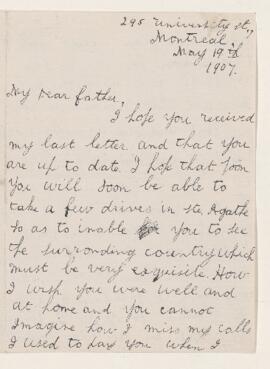 295 University st.,
Montreal,
May 19th
1907.
My Dear father,
I hope you received
my last letter and that you
are up to date. I hope that
you will soon be able to
take a few drives in ste. Agathe
so as to inable you to see
the surronding country which
must be very exquisite. How
I wish you were well and
at home and you cannot
Imagine how I miss my calls
I used to pay you when I